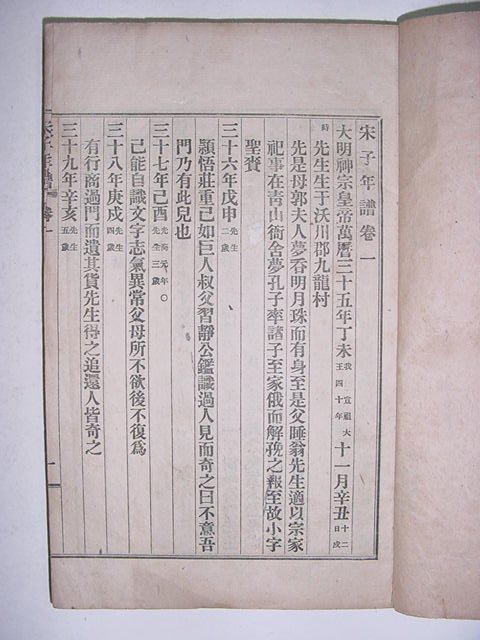 宋子年譜卷一
大明神宗皇帝萬曆三十五年丁未我宣祖大王四十年十一月辛丑十二日戌時
先生生于沃川郡九龍村
先是母郭夫人夢吞明月珠而有身至是父睡翁先生適以宗家
祀事在靑山衙舍夢孔子率諸子至家俄而解娩之報至故小字
聖賚
三十六年戊申先生二歲
穎悟莊重已如巨人叔父習靜公鑑識過人見而奇之曰不意吾
門乃有此兒也
三十七年己酉光海元年○先生三歲
已能自識文字志氣異常父母所不欲後不復爲
三十八年庚戌先生四歲
有行商過門而遺其貨先生得之追還人皆奇之
三十九年辛亥先生五歲
宋子年譜 卷一
一